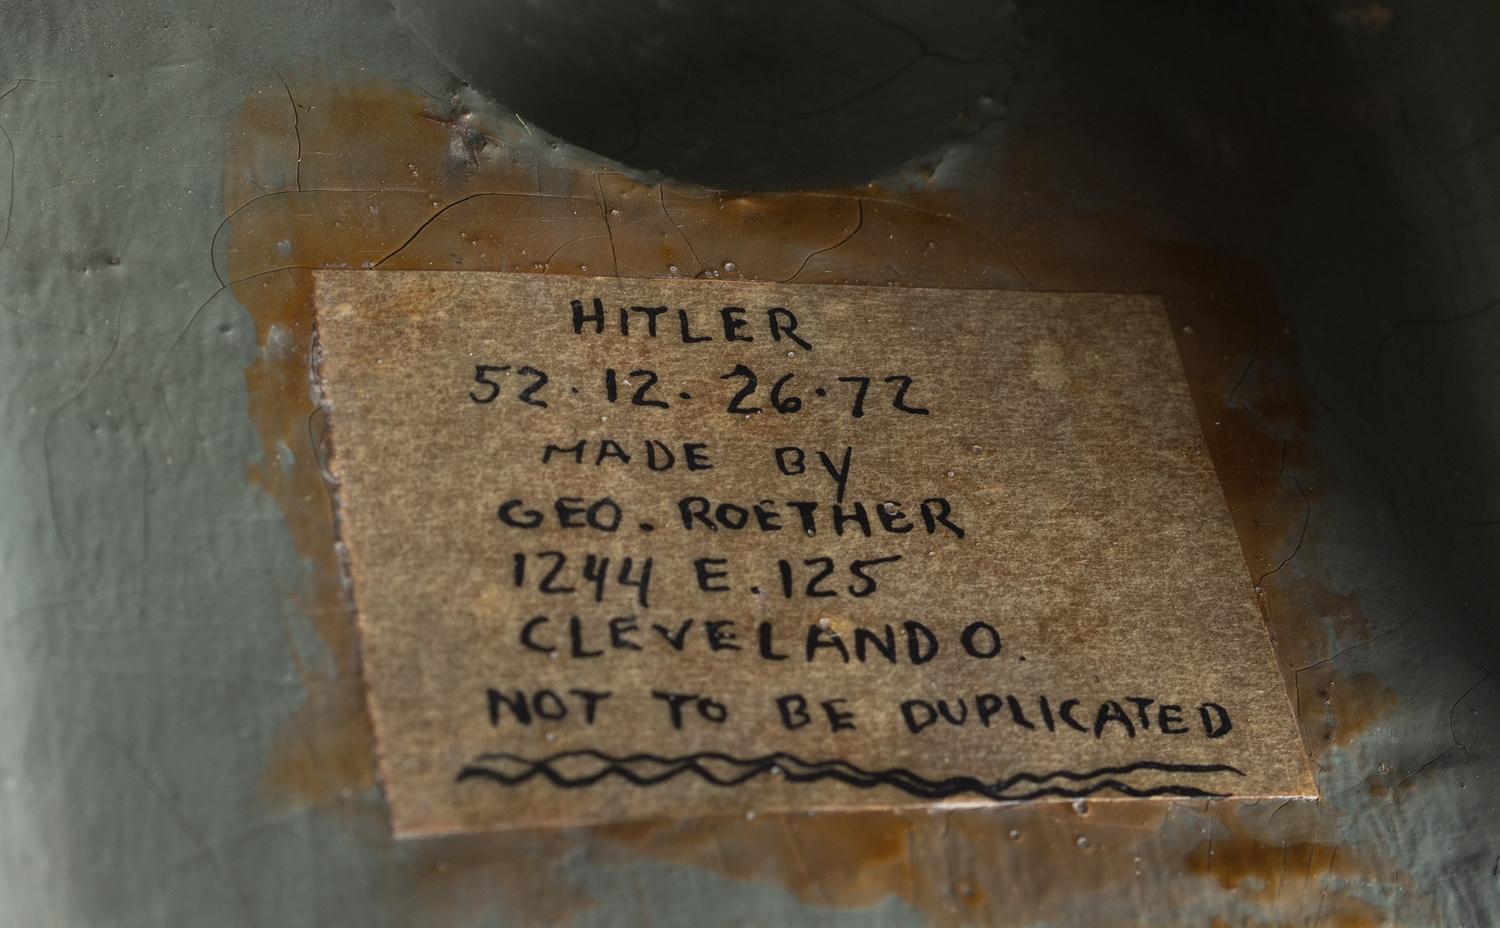 HITLER
52·12·26·72
MADE BY
GEO. ROETHER
1244 E.125
CLEVELAND O.
NOT TO BE DUPLICATED